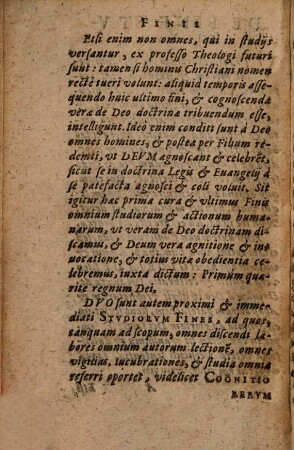 FINIS
Etsi enim non omnes, qui in studijs
versantur, ex professo Theologi futuri
sunt: tamen si hominis Christiani nomen
rectè tueri volunt: aliquid temporis asse-
quendo huic ultimo fini, & cognoscendæ
veræ de Deo doctrinæ tribuendum esse,
intelligunt. Ideò enim conditi sunt à Deo
omnes homines, & postea per Filium re-
demti, vt DEVM agnoscant & celebrēt,
sicut se in doctrina Legis & Euangelij à
se patefacta agnosci & coli voluit. Sit
igitur hæc prima cura & vltimus Finis
omnium studiorum & actionum huma-
narum, vt veram de Deo doctrinam di-
scamus, & Deum vera agnitione & in-
uocatione, & totius vitæ obedientia ce-
lebremus, iuxta dictum: Primum quæ-
rite regnum Dei.
DVO sunt autem proximi & imme-
diati STVDIORVM FINES, ad quos,
tanquam ad scopum, omnes discendi la-
bores omnium autorum lectionē, omnes
vigilias, lucubrationes, & studia omnia
referri oportet, videlicet COGNITIO
RERVM